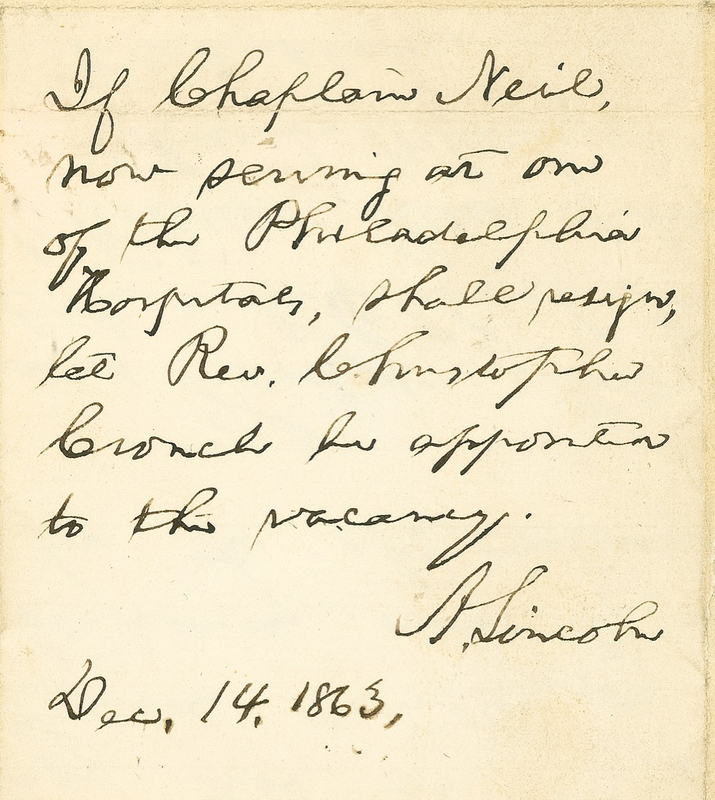 If Chaplain Neil,
now serving at one
of the Philadelphia
Hospitals, shall resign,
let Rev. Christopher
Crouch be appointed
to the vacancy.
A. Lincoln
Dec. 14. 1863,